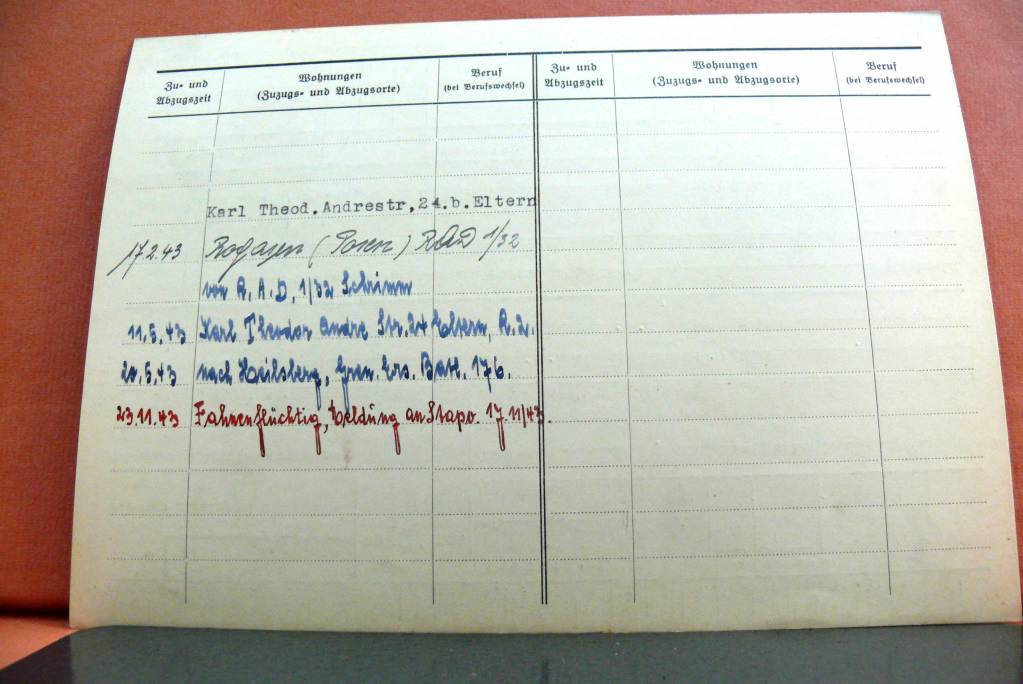 Zu- und Abzugszeit
Wohnungen
(Zuzugs- und Abzugsorte)
Beruf
(bei Berufswechsel)
Zu- und Abzugszeit
Wohnungen
(Zuzugs- und Abzugsorte)
Beruf
(bei Berufswechsel)
Karl Theod.Andrestr,24.b.Eltern
17.2.43 Rogasen (Posen) RAD 1/32
von R.A.D. 1/32 Schrimm
11.5.43 Karl Theodor Andre Str. 24 Eltern,
20.5.43 nach Heilsberg, Gren. Ers. Batl. 176.
23.11.43 Fahnenflüchtig, Meldung an Stapo 17.11/43.